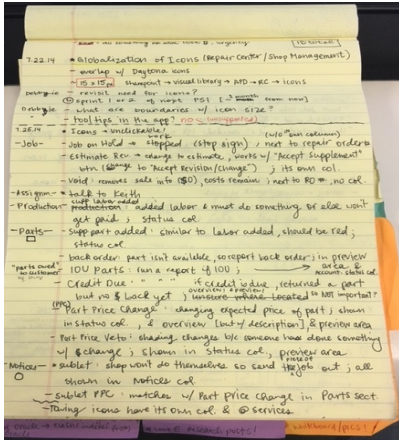 7.22.14 • Globalization of Icons (Repair Center/Shop Management)
- overlap w/ Daytona icons
- 15 x 15 px → visual library → APD → RC → icons
- revisit need for icons?
sprint 1 or 2 of next PSI from now)
- what are boundaries w/ icon size?
- tool tips in the app? no
7.25.14 • Icons → unclickable!
-Job- Job on Hold → stopped (stop sign) ; next to repair order # (w/o own column)
work
- Estimate Rev → change to estimate, works w/ "Accept Supplement"
btn (change to "Accept Revision/change") ; its own col.
- Void: removes sale info ($0), costs remain ; next to RO #, no col.
-Assignm- - talk to Keith
supp labor added
-Production- production: added labor & must do something or else won't
get paid ; status col
-Parts- - supp part added : similar to labor added, should be red ;
status col
- back order : part isn't available, so report back order ; in preview area & account status col.
"parts owed" to customer IOU Parts : run a report of IOU ;
- Credit Due - " " if credit is due, returned a part
overview & preview
but no $ back yet ; unsure where located so NOT important?
(PPC) Part Price Change - changing expected price of part ; shown
in status col, & overview [but w/ description] & preview area
- Part Price Veto : sharing changes b/c someone has done something
w/ $ change ; shown in status col, preview area
-Notices- • sublet : shop won't do themselves so send piece of the job out ; all
shown in Notices col
- Sublet PPC : matches w/ Part Price Change in Parts sect.
- Towing icons have its own col & @ services